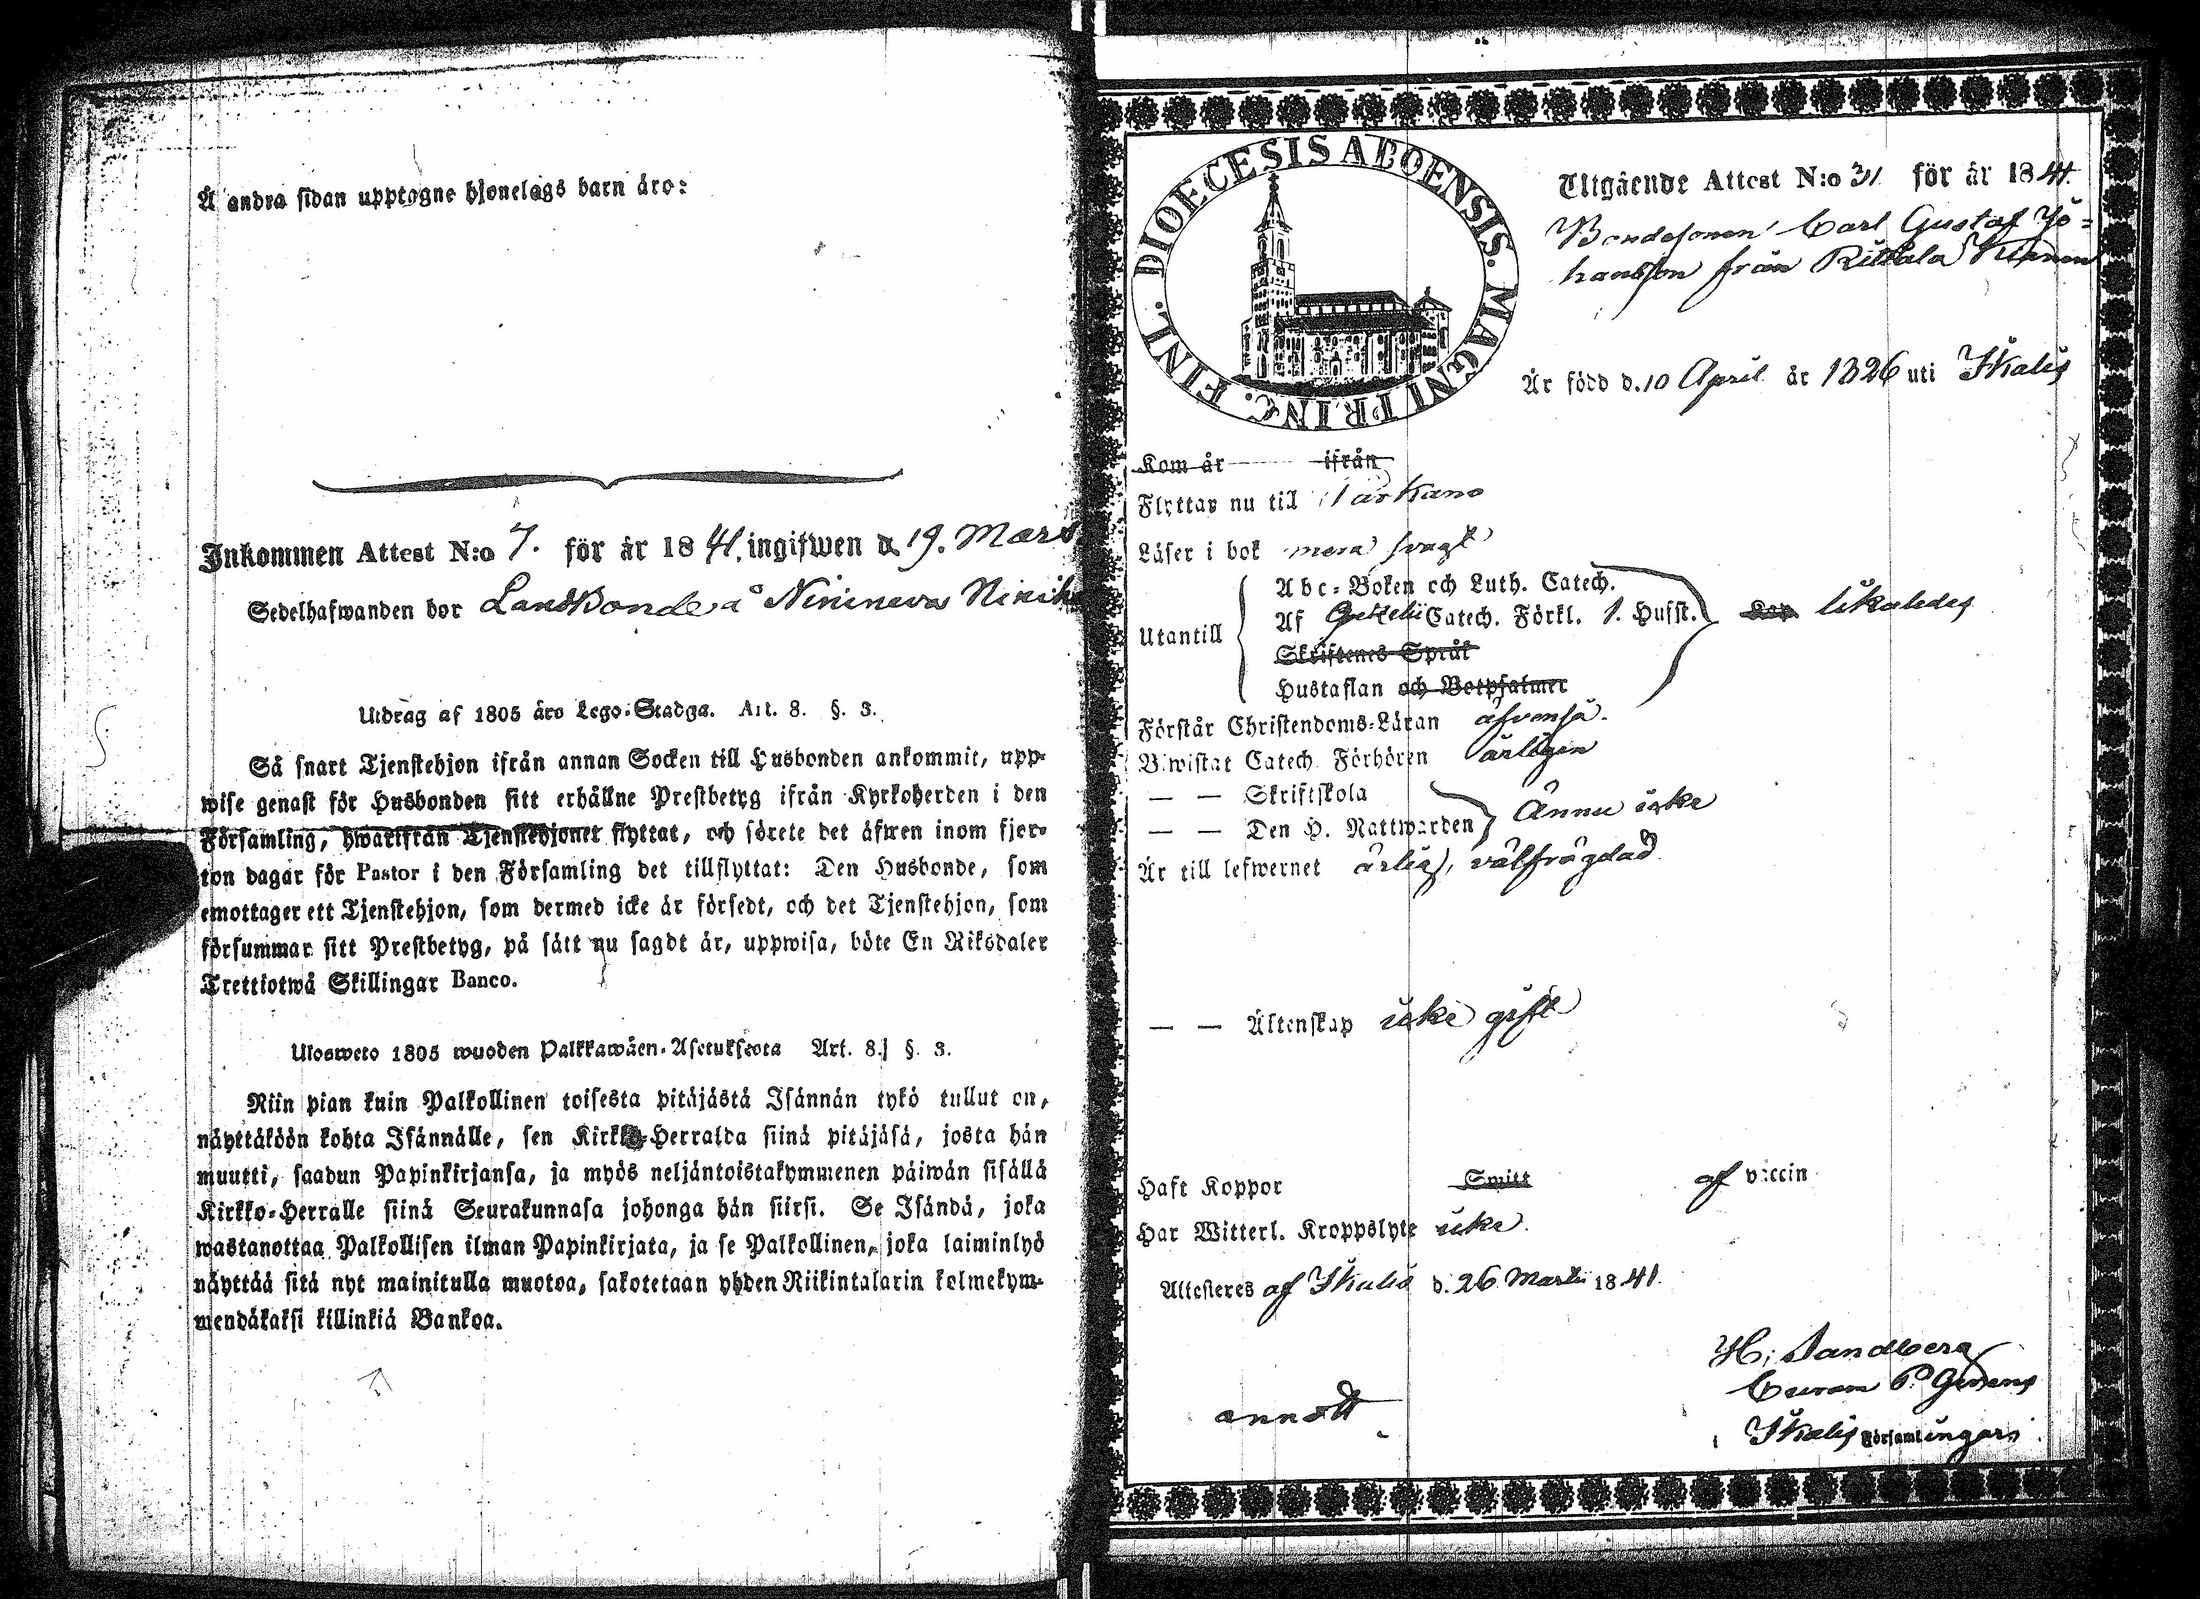 Å andra sidan upptagne hjonelags barn äro:
Inkommen Attest N:o 7. för år 1841. ingifwen d. 19. Mars
Sedelhafwanden bor Landbonde å Ninineva
Utdrag af 1805 års Lego-Stadga. Art. 8. §. 3.
Så snart Tjenstehjon ifrån annan Socken till Husbonden ankommit, upp-
wise genast för Husbonden sitt erhållne Prestbetyg ifrån Kyrkoherden i den
Församling, hwarifrån Tjenstehjonet flyttat, och förete det äfwen inom fjor-
ton dagar för Pastor i den Församling det tillflyttat: Den Husbonde, som
emottager ett Tjenstehjon, som dermed icke är försedt, och det Tjenstehjon, som
försummar sitt Prestbetyg, på sätt nu sagdt är, uppwisa, böte En Riksdaler
Trettiotwå Skillingar Banco.
Ulosweto 1805 wuoden Palkkawäen-Asetuksesta Art. 8. §. 3.
Niin pian kuin Palkollinen toisesta pitäjästä Isännän tykö tullut on,
näyttäköön kohta Isännälle, sen Kirkko-Herralda siinä pitäjäsä, josta hän
muutti, saadun Papinkirjansa, ja myös neljäntoistakymmenen päiwän sisällä
Kirkko-Herralle siinä Seurakunnasa johonga hän siirsi. Se Isändä, joka
wastanottaa Palkollisen ilman Papinkirjata, ja se Palkollinen, joka laiminlyö
näyttää sitä nyt mainitulla muotoa, sakotetaan yhden Riikintalarin kolmekym-
mendäkaksi killinkiä Bankoa.
DIOECESIS ABOENSIS. MAGNI PRINC. FINL.
Utgående Attest N:o 31 för år 1841.
Bondesonen Carl Gustaf Jo=
hansson från Riitiala
Är född d. 10 April år 1826 uti Ikalis
Kom år ifrån
Flyttar nu till Parkano
Läser i bok mera svagt
Utantill
Abc-Boken och Luth. Catech.
Af Gezelii Catech. Förkl. 1. Hufst. Kap. likaledes
Skriftenes Språk
Hustaflan och Botpsalmer
Förstår Christendoms-Läran äfvenså.
Biwistat Catech. Förhören årligen
— — Skriftskola
— — Den H. Nattwarden Ännu icke
Är till lefwernet ärlig, välfrägdad
— — Äktenskap icke gift
Haft Koppor Smitt af vaccin
Har Witterl. Kroppslyte icke.
Attesteres af Ikalis d. 26 Martii 1841.
H: Sandberg
annott
i Ikalis Församlingar.